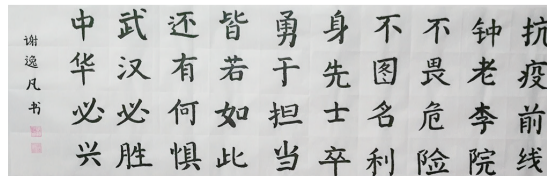 抗疫前线
钟老李院
不畏危险
不图名利
身先士卒
勇于担当
皆若如此
还有何惧
武汉必胜
中华必兴
谢逸凡书